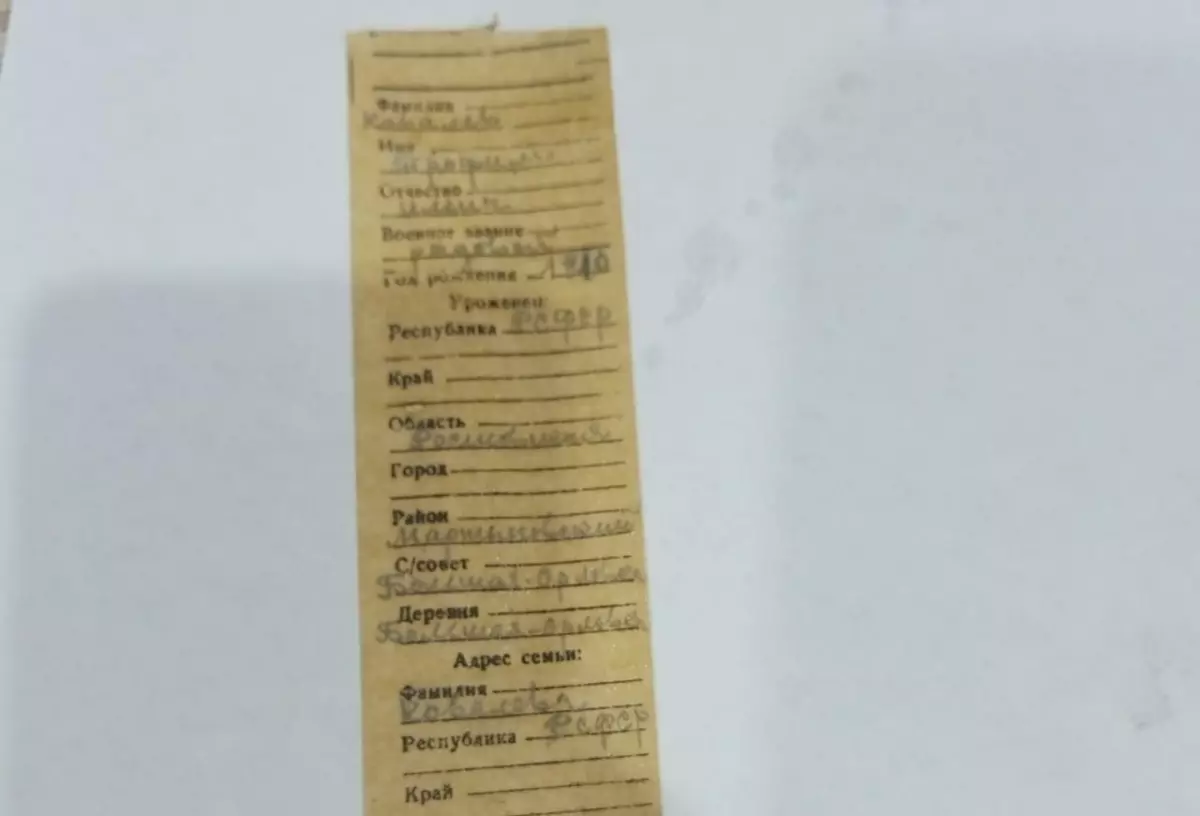 Фамилия
Ковалев
Имя
Трофим
Отчество
Ильич
Военное звание
рядовой
Год рождения 1910
Уроженец:
Республика РСФСР
Край
Область
Ростовская
Город
Район
Мартыновский
С/совет
Больщая-Орловка
Деревня
Больщая-Орловка
Адрес семьи:
Фамилия
Ковалева
Республика РСФСР
Край